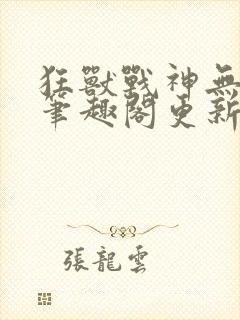 狂獸戰神無
筆趣閣更新
張龍雲